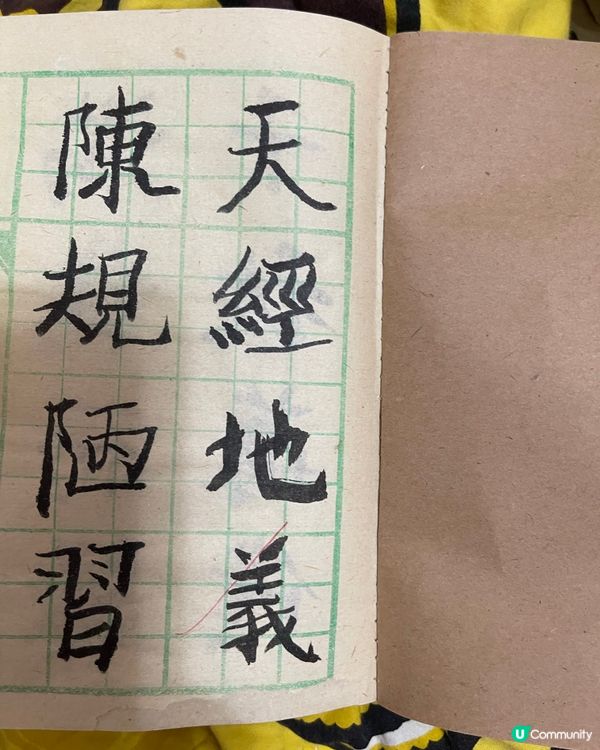 天經地義
陳規陋習
U Community